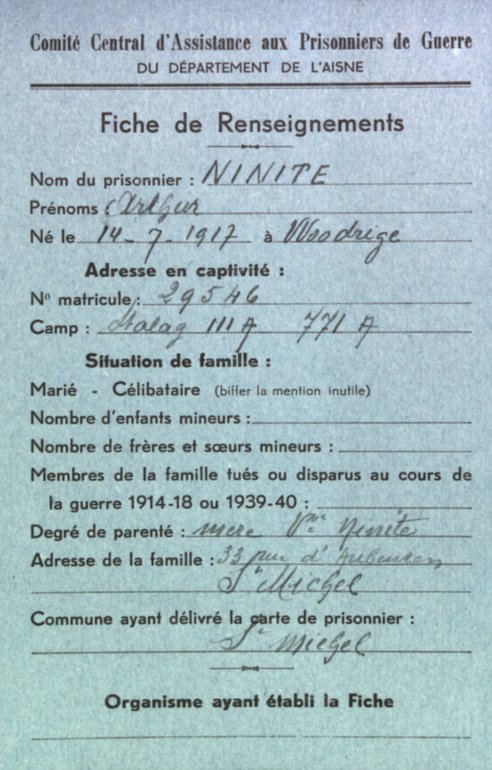 Comité Central d'Assistance aux Prisonniers de Guerre
DU DÉPARTEMENT DE L'AISNE
Fiche de Renseignements
Nom du prisonnier : NINITE
Prénoms : Arthur
Né le 14-7-1917 à Woodrige
Adresse en captivité :
Nº matricule : 29546
Camp : Stalag III A 771 A
Situation de famille :
Marié - Célibataire (biffer la mention inutile)
Nombre d'enfants mineurs :
Nombre de frères et sœurs mineurs :
Membres de la famille tués ou disparus au cours de
la guerre 1914-18 ou 1939-40 :
Degré de parenté : mere Vve Ninite
Adresse de la famille : 33 rue d'Aubenton
St Michel
Commune ayant délivré la carte de prisonnier :
St Michel
Organisme ayant établi la Fiche